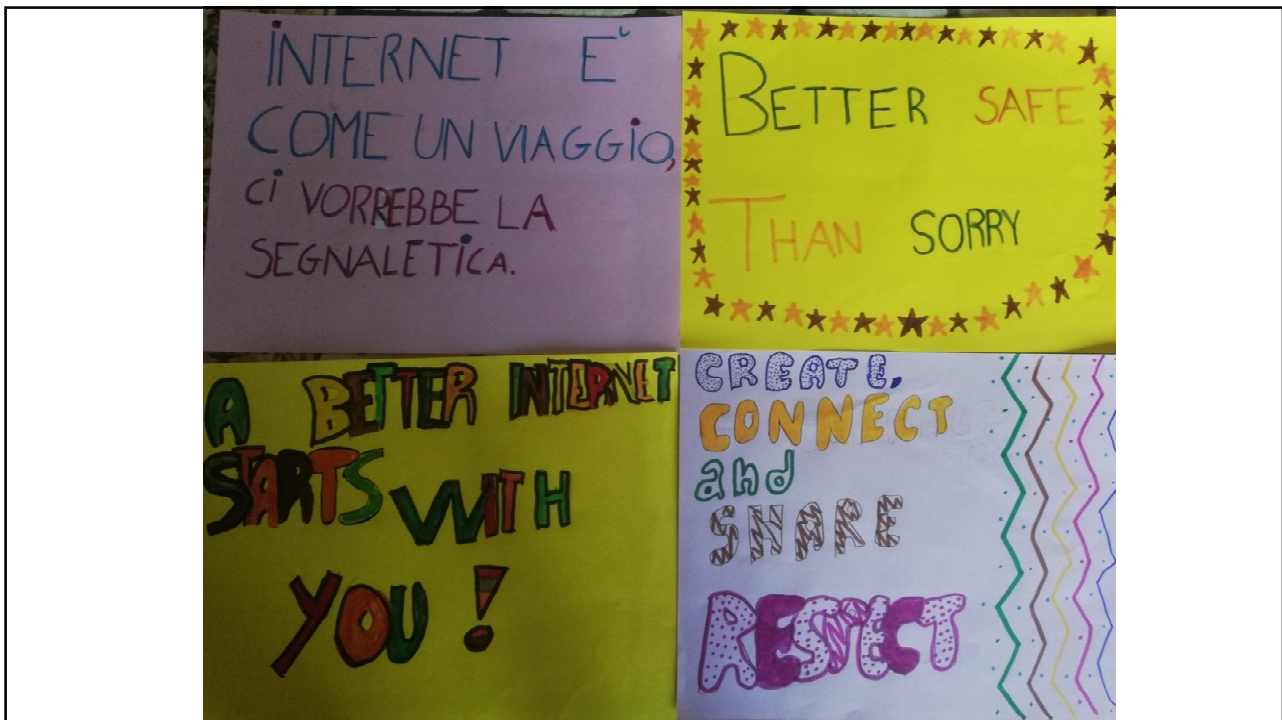 INTERNET E'
COME UN VIAGGIO,
Ci VORREBBE LA
SEGNALETiCA.
BETTER SAFE
THAN SORRY
A BETTER INTERNET
STARTS WITH
YOU!
CREATE,
CONNECT
and
SHARE
RESPECT